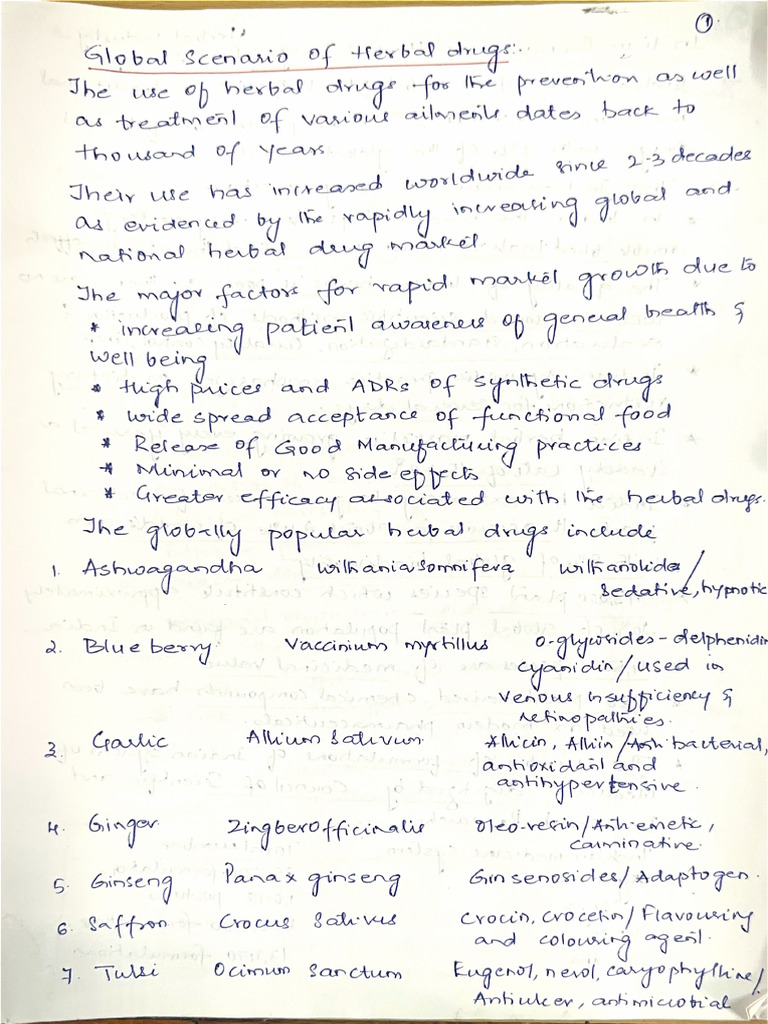 ①
Global Scenario of Herbal drugs:
The use of herbal drugs for the prevention as well
as treatment of various ailments dates back to
thousand of years
Their use has increased worldwide since 2-3 decades
as evidenced by the rapidly increasing global and
national herbal drug market
The major factors for rapid market growth due to
* increasing patient awareness of general health &
well being
* High prices and ADRs of synthetic drugs
* wide spread acceptance of functional food
* Release of Good Manufacturing practices
* Minimal or no side effects
* Greater efficacy associated with the herbal drugs.
The globally popular herbal drugs include
1. Ashwagandha Withania somnifera withanolides/
Sedative, hypnotic
2. Blue berry Vaccinium myrtillus O-glycosides - delphenidin
cyanidin/used in
venous insufficiency &
retinopathies.
3. Garlic Allium Sativum Allicin, Alliin/Anti bacterial,
antioxidant and
antihypertensive.
4. Ginger Zingber officinalis Oleo-resin/Anti-emetic,
carminative.
5. Ginseng Panax ginseng Ginsenosides/Adaptogen.
6. Saffron Crocus Sativus Crocin, Crocetin/Flavouring
and colouring agent.
7. Tulsi Ocimum Sanctum Eugenol, nerol, caryophylline/
Antiulcer, antimicrobial